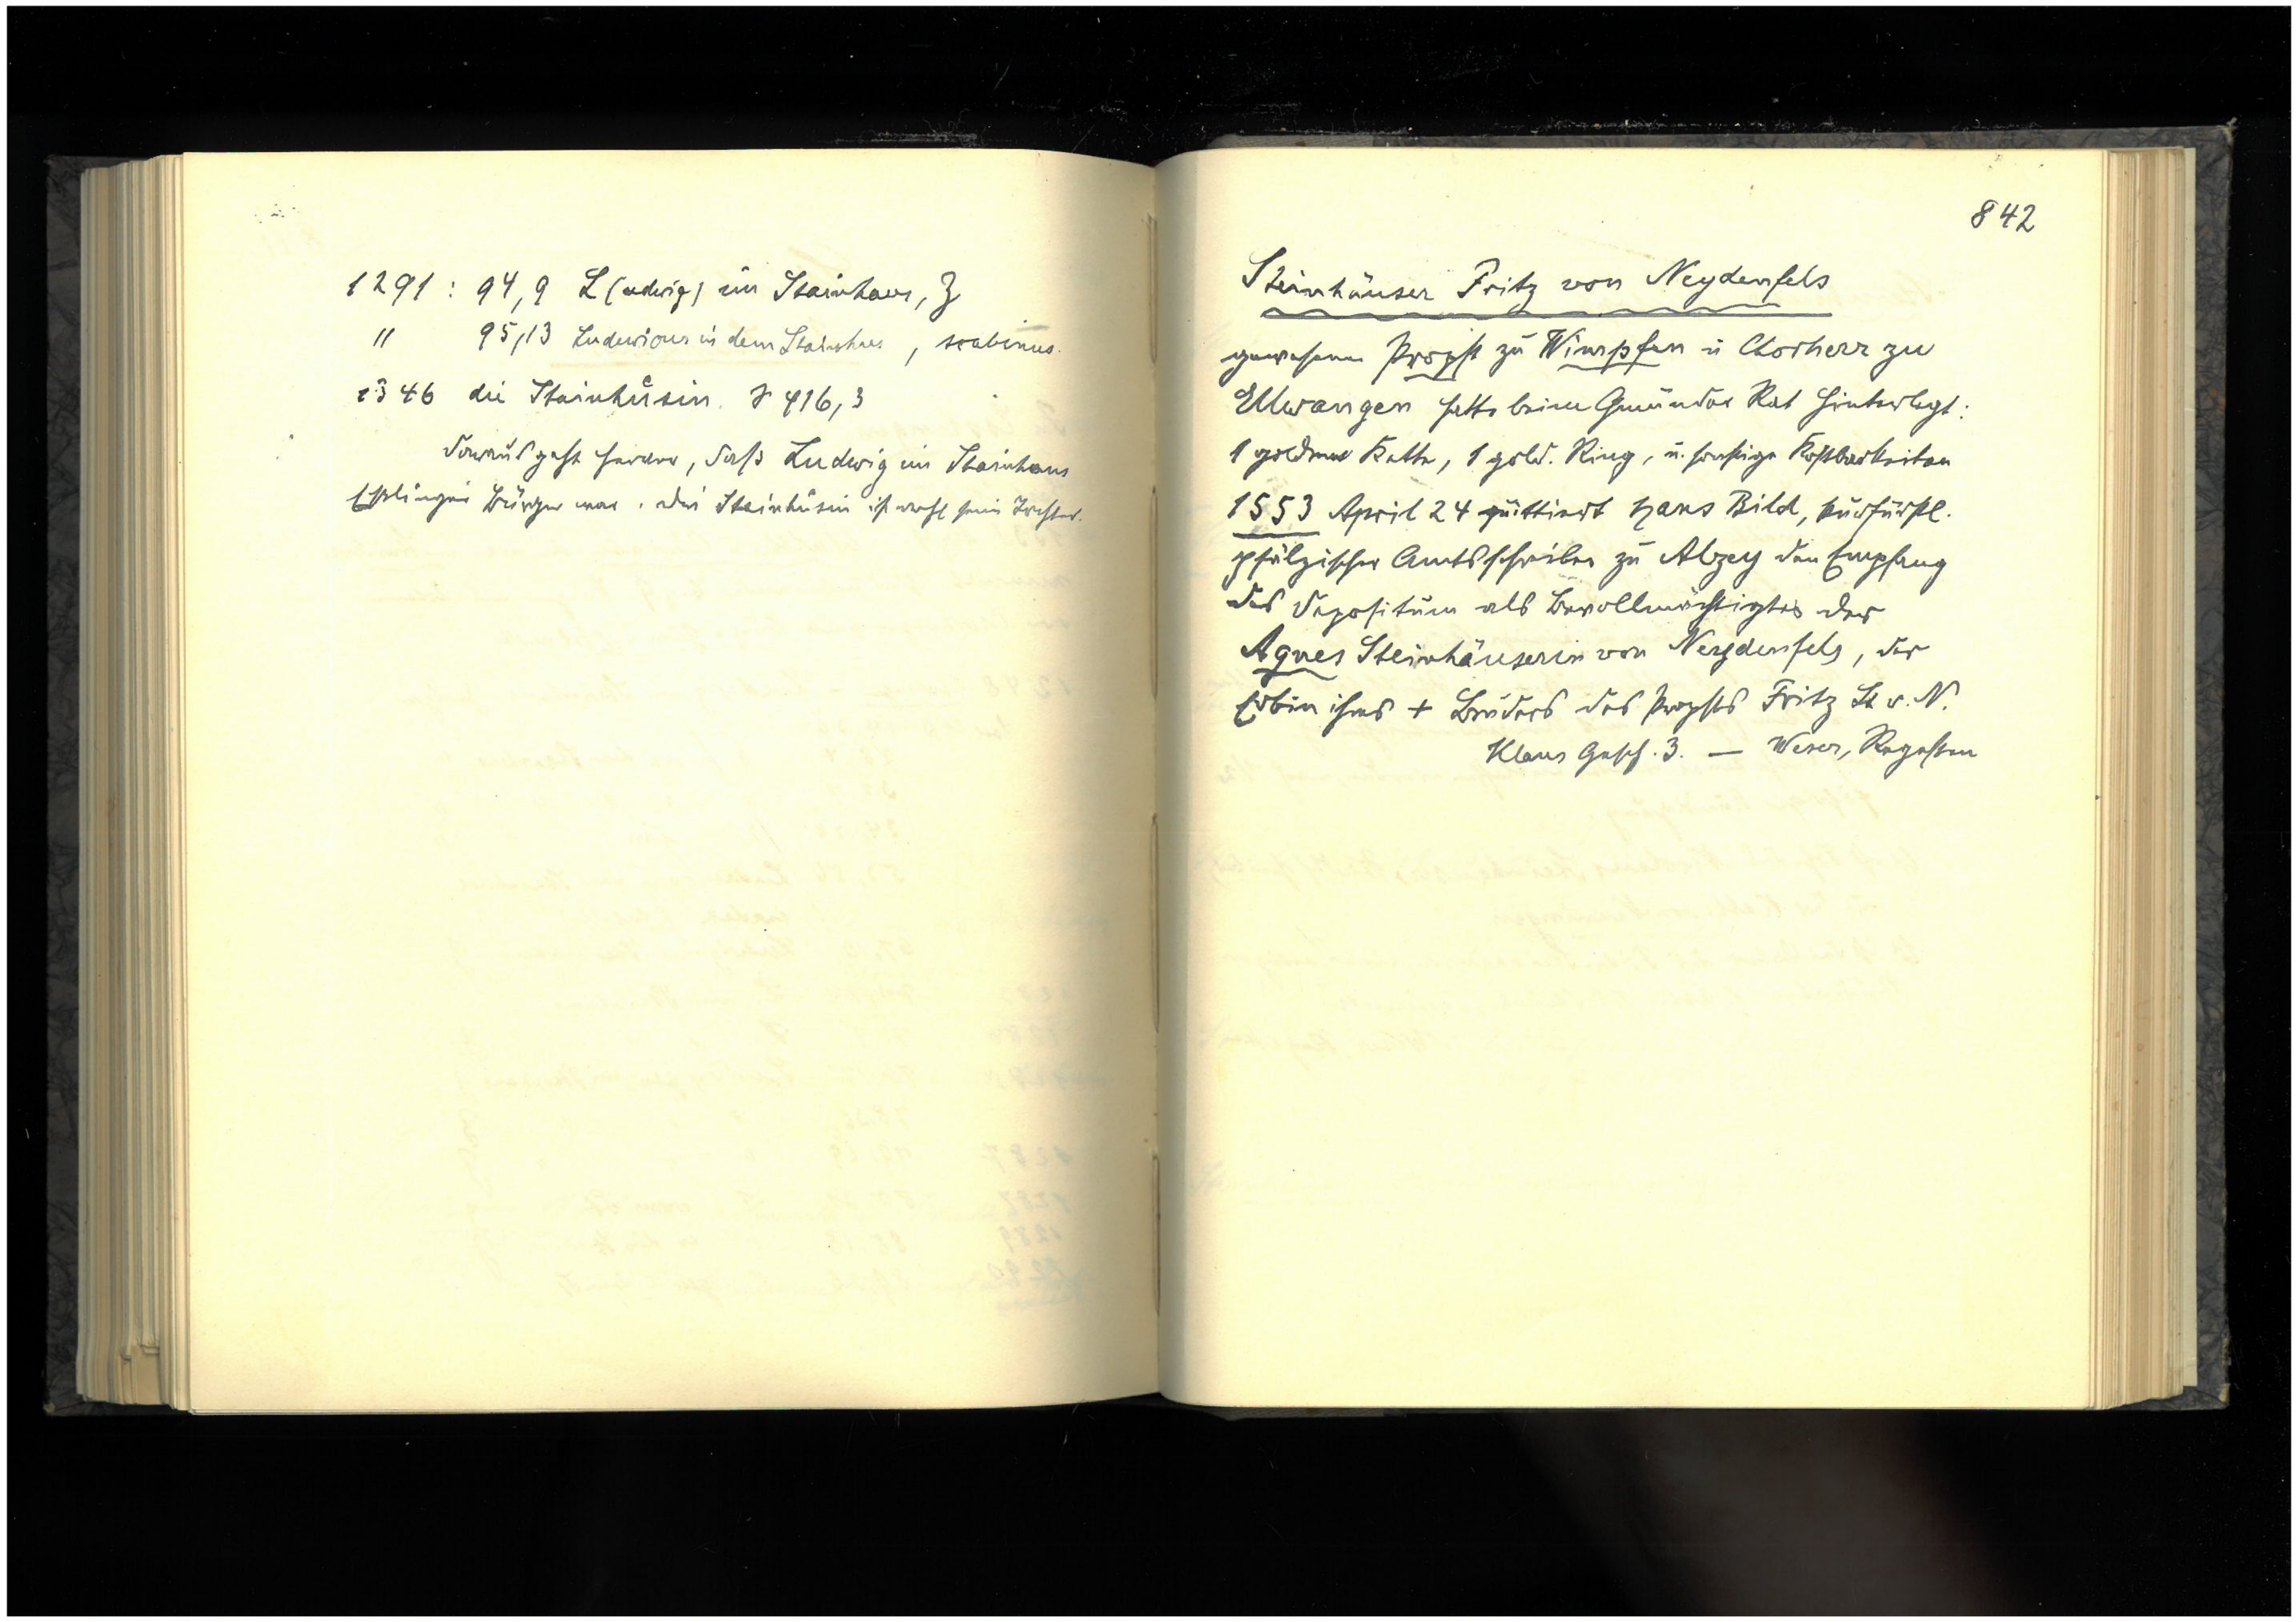 1291 : 94,9 L(udwig) im Stainhaus, Z
" 95,13 Ludewicus in dem Stainhus, scabinus.
1346 die Stainhůsin. S 416,3
Daraus geht hervor, daß Ludwig im Stainhaus
Esslinger Bürger war. Die Stainhůsin ist wohl seine Tochter.
842
Steinhäuser Fritz von Neydenfels
gewesener Propst zu Wimpfen u Chorherr zu
Ellwangen hatte beim Gmünder Rat hinterlegt:
1 goldene Kette, 1 gold. Ring, u. sonstige Kostbarkeiten
1553 April 24 quittiert Hans Bild, kurfürstl.
pfälzischer Amtsschreiber zu Alzey den Empfang
des Depositum als Bevollmächtigter der
Agnes Steinhäuserin von Neydenfels, der
Erbin ihres + Bruders des Propsts Fritz St v. N.
Klaus Gesch. 3. — Weser, Regesten